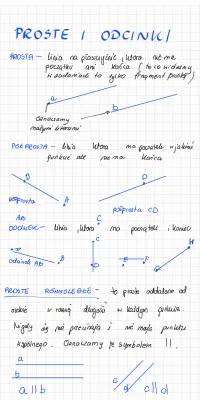 PROSTE I ODCINKI
PROSTA - linia na płaszczyźnie, która nie ma
początku ani końca (to co widzimy
w zadaniach to tylko fragment prostej)
a
b
Oznaczamy
małymi literami
PÓŁPROSTA - linia która ma początek w jakimś
punkcie ale nie ma końca
B
A
D
półprosta
AB
C
półprosta CD
ODCINEK - linia, która ma początek i koniec
B
C
D
E
F
G
H
odcinek AB
PROSTE RÓWNOLEGŁE - to proste oddalone od
siebie w równej długości w każdym punkcie.
Nigdy się nie przecinają i nie mają punktu
wspólnego. Oznaczamy je symbolem ||.
a
b
a||b
c
d
c||d